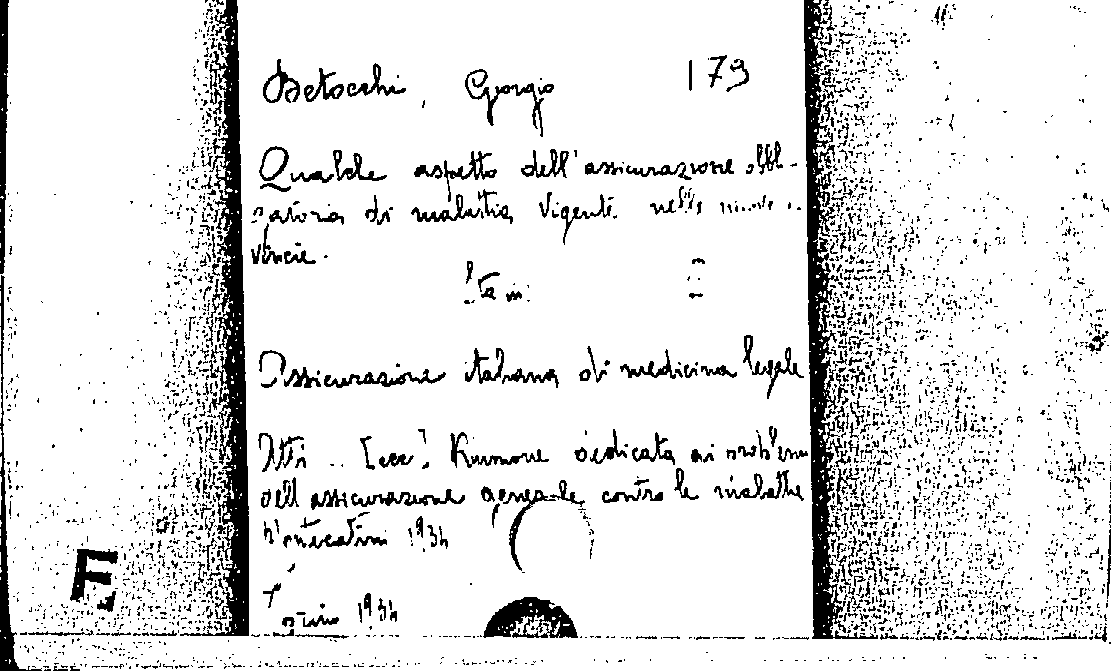 Betocchi, Giorgio 179
Qualche aspetto dell'assicurazione obbli-
gatoria di malattia vigente nelle nuove
vincie.
Sta in:
Assicurazione italiana di medicina legale
Atti .. [ecc]. Riunione dedicata ai problemi
dell'assicurazione generale contro le malattie
Montecatini 1934
Torino 1934
F